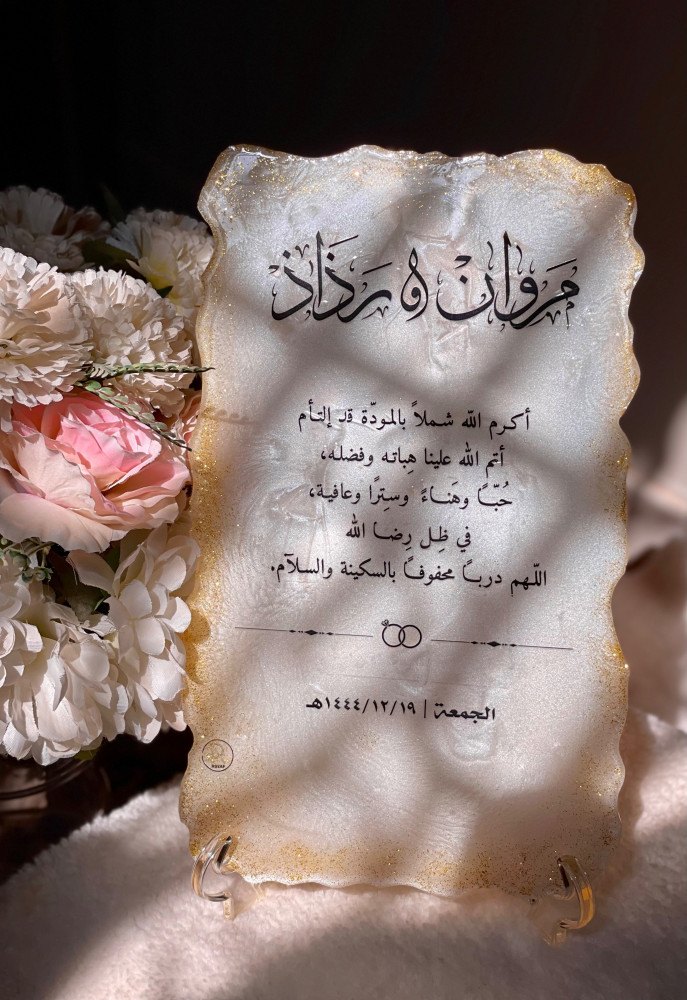 مروان & رذاذ
أكرم اللّه شملاً بالمودّة قد إلتأم
أتم الله علينا هِباته وفضله،
حُبّـًا وهَناءً وسـِترًا وعافية،
في ظِل رِضا الله
اللّهم دربـًا محفوفـًا بالسكينة والسلآم.
الجمعة | ١٤٤٤/١٢/١٩هـ